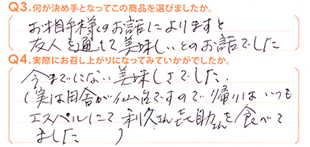 Q3.何が決め手となってこの商品を選びましたか。
お相手様のお話によりますと
友人を通して美味しいとのお話でした
Q4.実際にお召し上がりになってみていかがでしたか。
今までにない美味しさでした。
(実は田舎が仙台ですので帰りはいつも
エスパルにて利久さん喜助さんを食べて
ました)